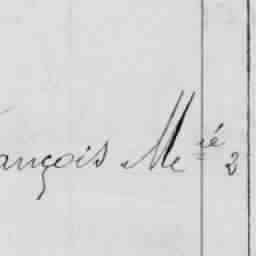 ançois Me ié 2